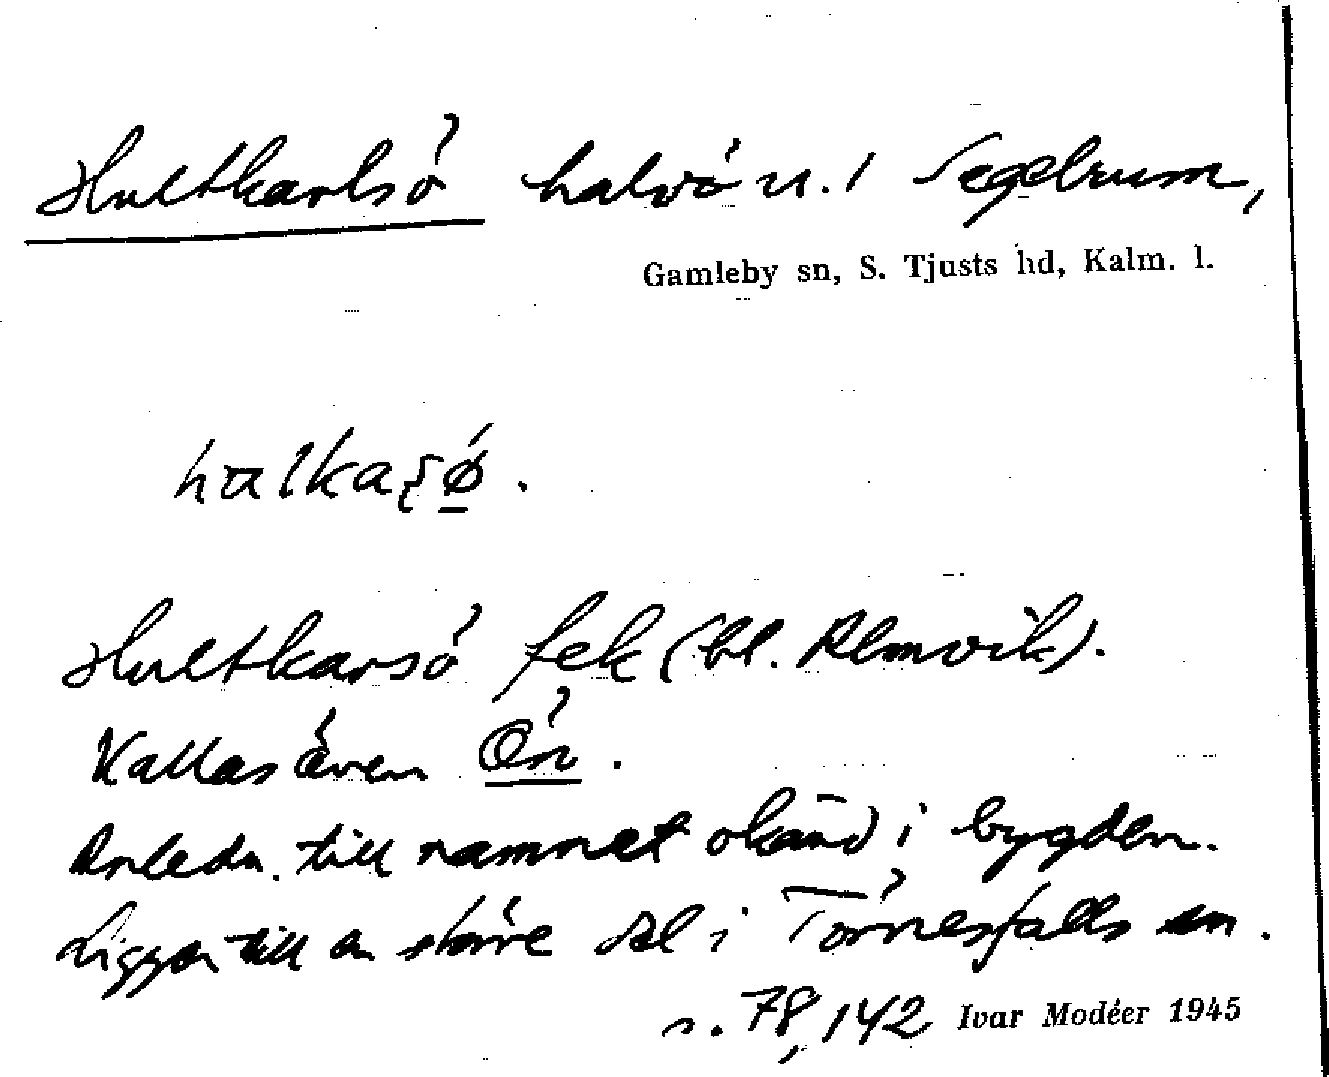 Hultkarlsö halvö u. / Segelrum,
Gamleby sn, S. Tjusts hd, Kalm. l.
Hultkarsö fek (bl. Almvik).
Kallas även Ön.
Anledn. till namnet okänd i bygden.
Ligger till en större del i Törnesfalls sn.
s. 78, 142 Ivar Modéer 1945